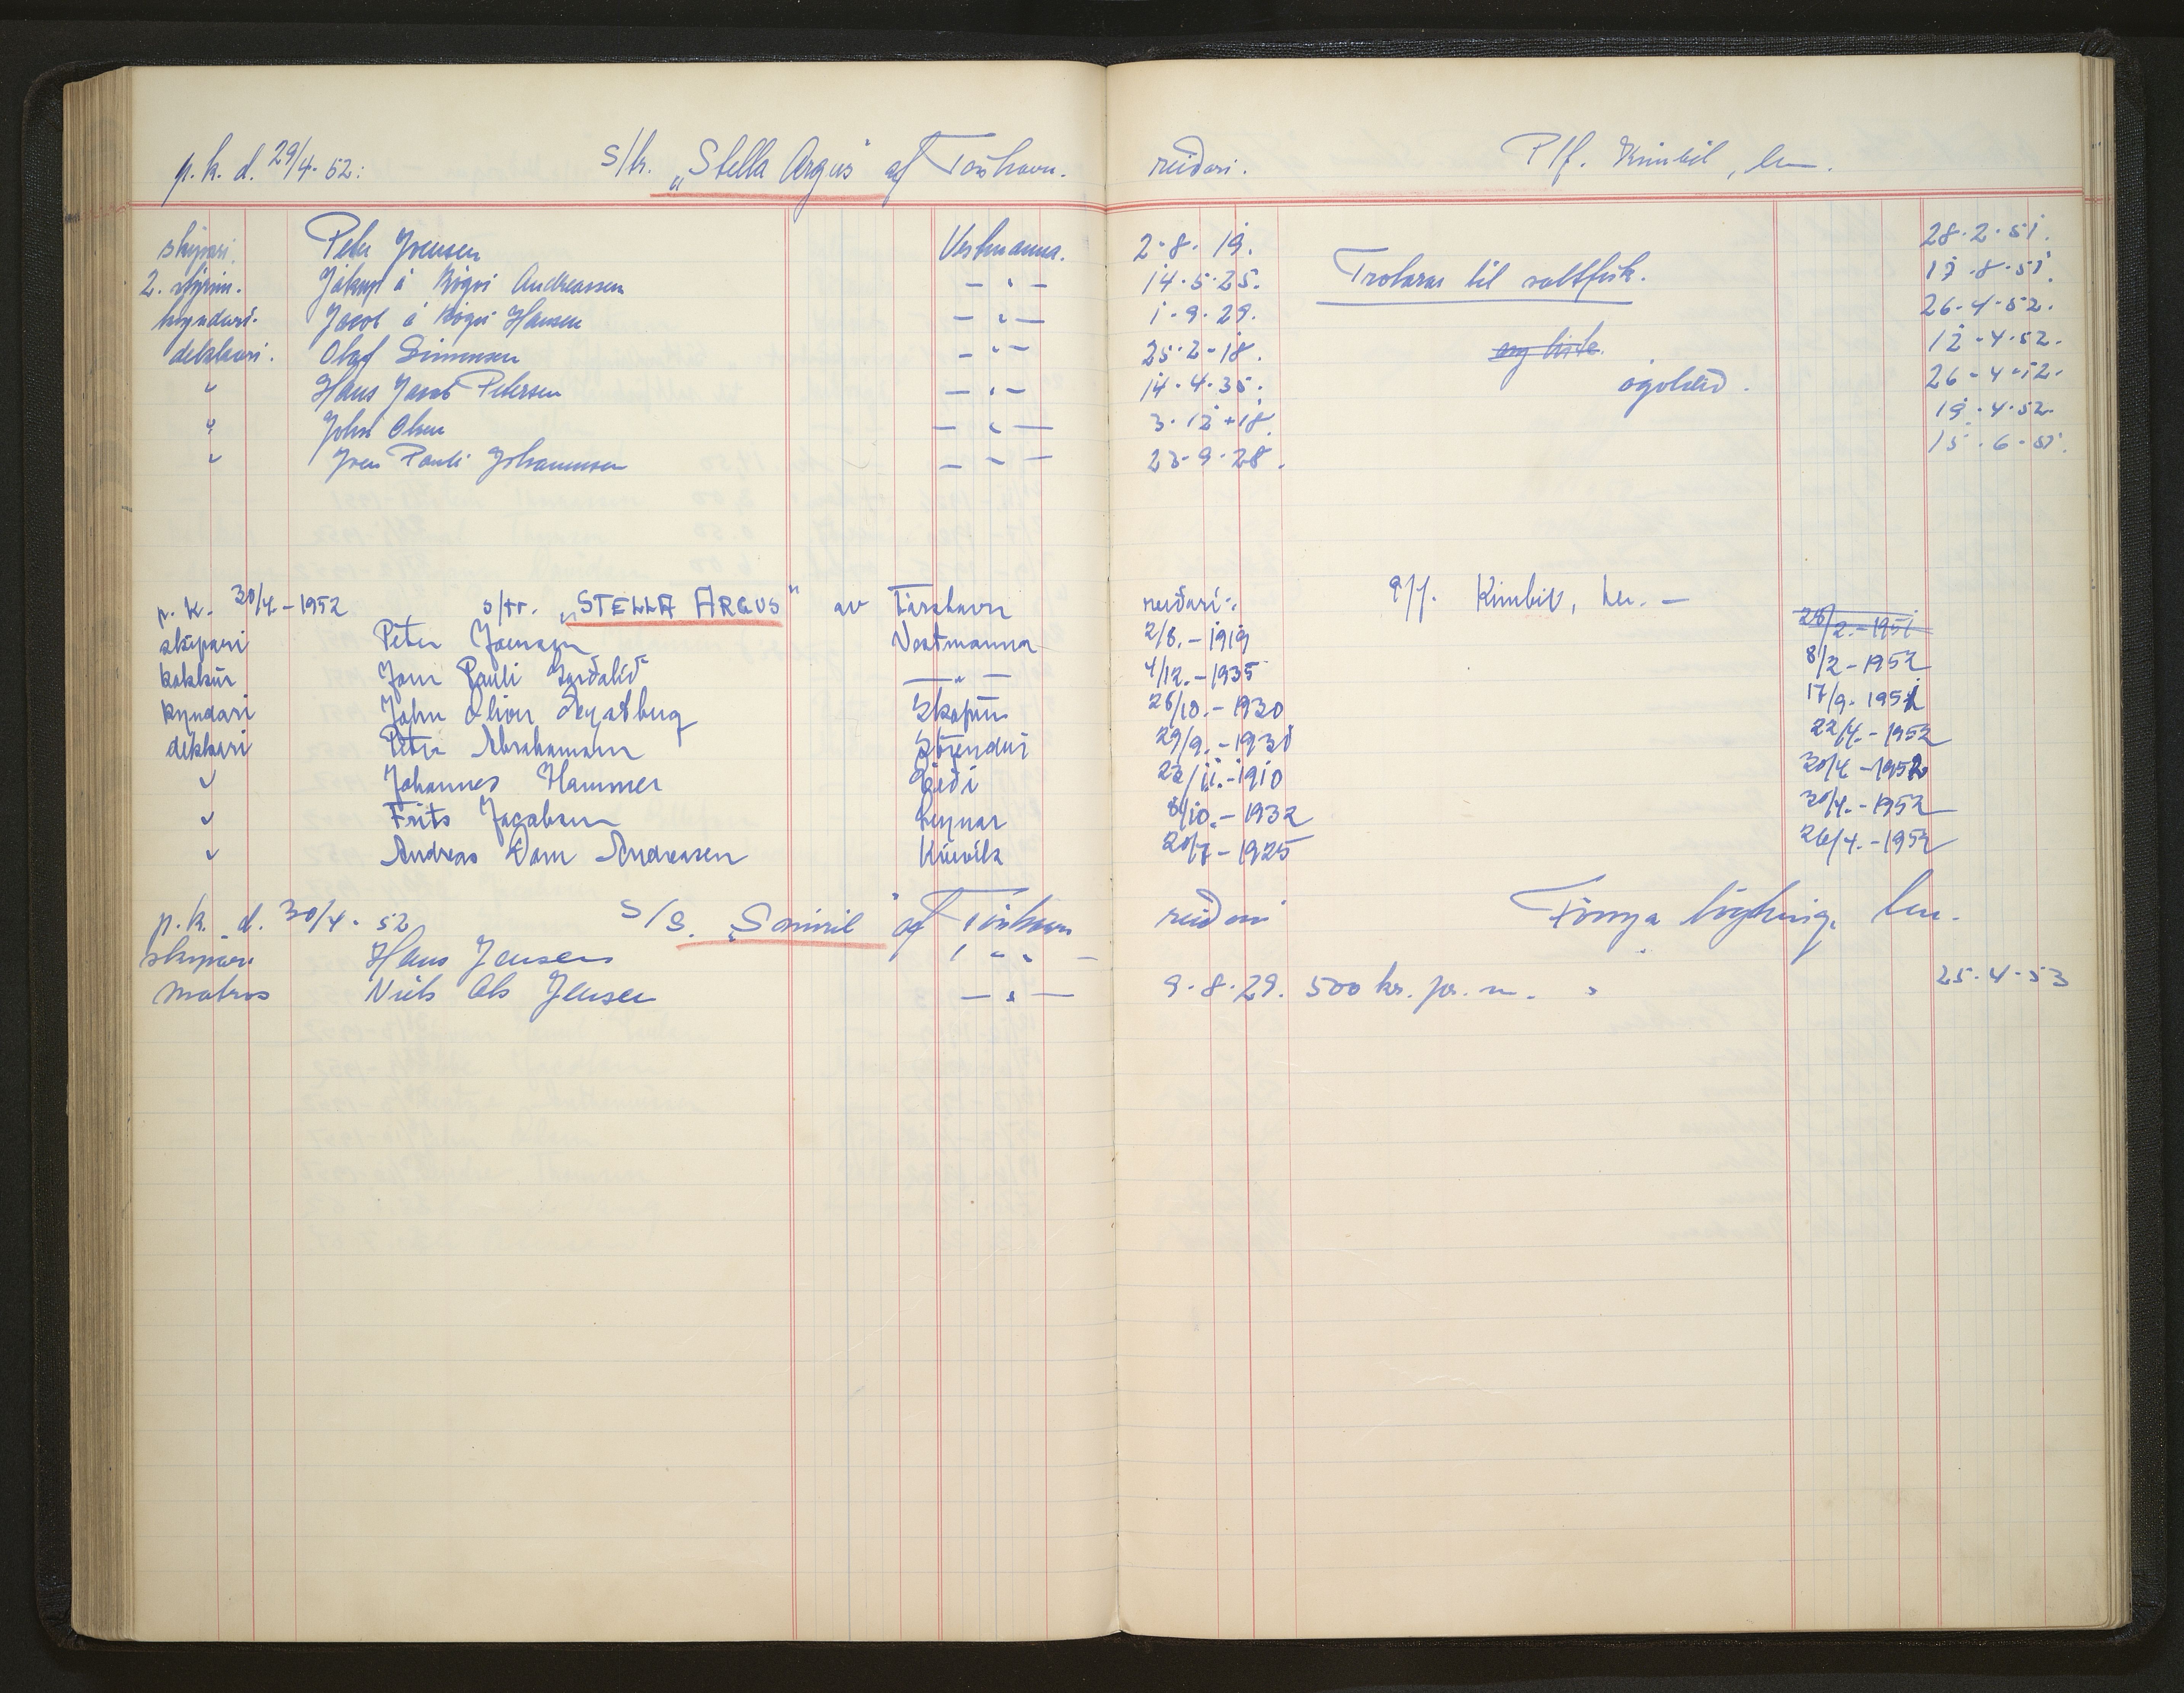 p. k. d. 29/4-52: s/tr. „Stella Argus" af Tórshavn. reiðari. P/f. Kimbil, hav.
skipari. Peter Joensen Vestmanna. 2-8-19. 28-2-51.
2. stýrim. Jákup á Bøgi Andreassen — " — 14-5-25. Trolarar til saltfisk. 17-8-51.
kyndari. Jacob á Bøgi Hansen — " — 1-9-29. 26-4-52.
dekkari. Olaf Simonsen — " — 25-2-18. 12-4-52.
" Hans Jacob Petersen — " — 14-4-35. ógoldið. 26-4-52.
" John Olsen — " — 3-12-18. 19-4-52.
" Joen Pauli Johannesen — " — 23-9-28. 15-6-51.
p. k. 30/4-1952 s/tr. „STELLA ARGUS" av Tórshavn reiðari: P/f. Kimbil, hav. —
skipari Peter Joensen Vestmanna 2/8.-1919 28/2.-1951
kokkur Joen Pauli — " — 4/12.-1935 8/2-1952
kyndari John Oliver Skopun 26/10.-1930 17/9-1951
dekkari Peter Abrahamsen Strendur 29/9.-1930 22/4.-1952
" Johannes Hammer Eiði 22/11.-1910 30/4-1952
" Frits Jacobsen Leynar 8/10.-1932 30/4.-1952
" Andreas Dam Andreasen Kvívík 20/7-1925 26/4.-1952
p. k. d. 30/4-52 S/S. „Smiril" af Tórshavn reiðari Føroya løgting, hav.
skipari Hans Jensen — " —
matros Niels Ole Jensen — " — 9-8-29. 500 kr. pr. m. " 25-4-53